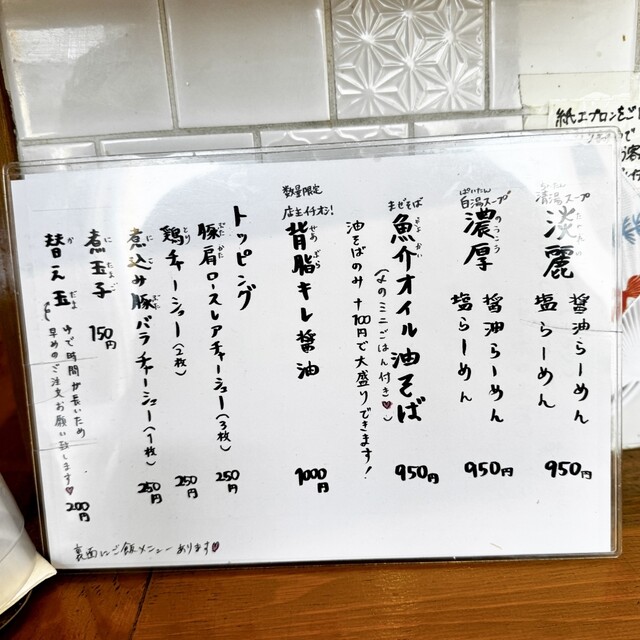 清湯スープ
淡麗
醤油らーめん
塩らーめん
950円
ぱいたん
白湯スープ
濃厚
のうこう
醤油らーめん
塩らーめん
950円
まぜそば
魚介オイル油そば
ぎょかい
(〆のミニごはん付き♥)
950円
油そばのみ +100円で大盛りできます!
数量限定
店主イチオシ!
背脂キレ醤油
せあぶら
1000円
トッピング
豚肩ロースレアチャーシュー(3枚)
ぶたかた
250円
鶏チャーシュー(2枚)
とり
250円
煮込み豚バラチャーシュー(1枚)
250円
煮玉子
にたまご
150円
替え玉
かだま
ゆで時間が長いため
早めのご注文お願い致します♥
200円
裏面にご飯メニューあります♥
紙エプロンをご